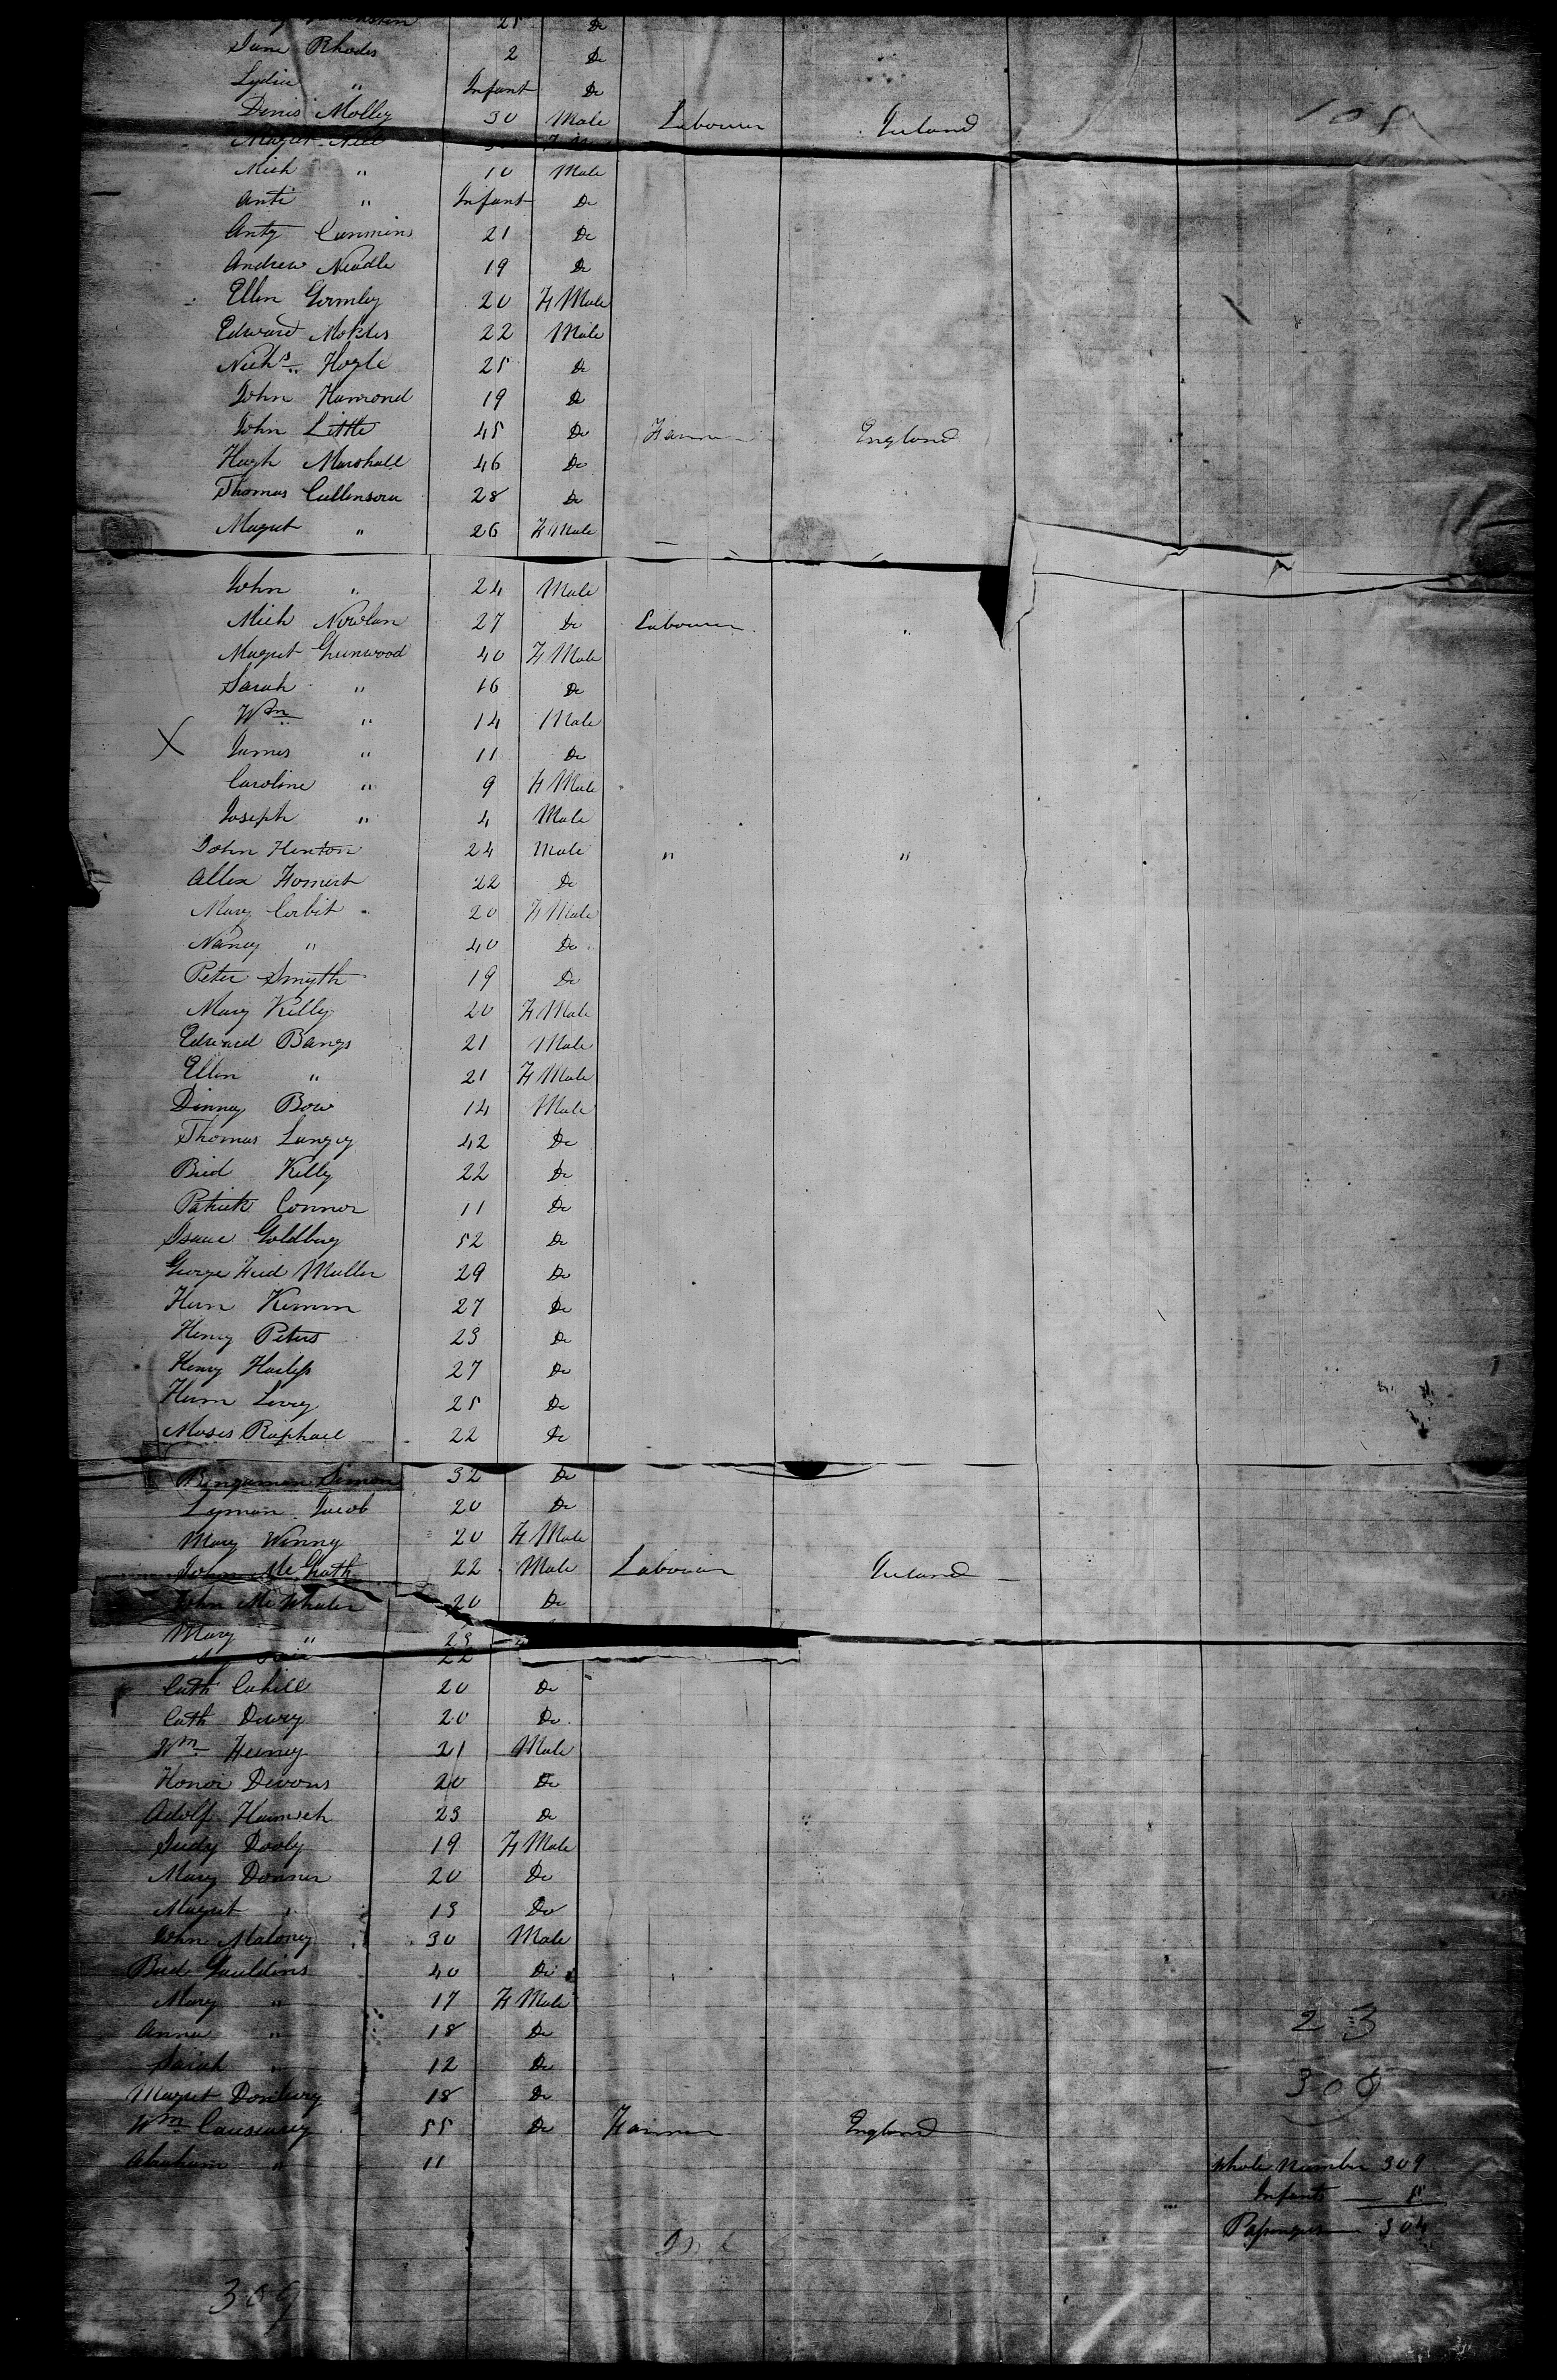 25 Do
Jane Rhodes 2 Do
Lydia " Infant Do
Denis Molloy 30 Male Labourer Ireland 105
Magret Nell
Mich " 10 Male
Anti " Infant Do
Anty Cummins 21 Do
Andrew Neadle 19 Do
Ellen Gormley 20 F Male
Edward Mokles 22 Male
Nichs Hogle 25 Do
John Hamond 19 Do
John Little 45 Do Farmer England
Hugh Marshall 46 Do
Thomas Cullensou 28 Do
Magret " 26 F Male
John " 24 Male
Mich Nowlan 27 Do Labourer "
Magret Greenwood 40 F Male
Sarah " 16 Do
Wm " 14 Male
X James " 11 Do
Caroline " 9 F Male
Joseph " 4 Male
John Henton 24 Male " "
Allex Homert 22 Do
Mary Corbit 20 F Male
Nancy " 40 Do
Peter Smyth 19 Do
Mary Killy 20 F Male
Edward Bangs 21 Male
Ellen " 21 F Male
Dinney Bow 14 Male
Thomas Langey 42 Do
Brid Killy 22 Do
Patrick Connor 11 Do
Isaac Goldberg 52 Do
George Fred Muller 29 Do
Hern Kimm 27 Do
Henry Peters 23 Do
Henry 27 Do
Herm Levey 25 Do
Moses Raphael 22 Do
Bengamen Simon 32 Do
Lyman Jacob 20 Do
Mary Winny 20 F Male
John Mc Grath 22 Male Labourer Ireland
John Mc Whaler 20 Do
Mary " 23
22
Cath Cahill 20 Do
Cath Dewry 20 Do
Wm Heeney 21 Male
Honor Devons 20 Do
Adolf 23 Do
Judy Dooly 19 F Male
Mary Donner 20 Do
Magret " 13 Do
John Maloney 30 Male
Brid Gauldins 40 Do
Mary " 17 F Male
Anna " 18 Do
23
Sarah " 12 Do
Magret 18 Do
308
Wm Causeway 55 Do Farmer England
Abraham " 11
Whole Number 309
Infants 5
Passengers 304
309